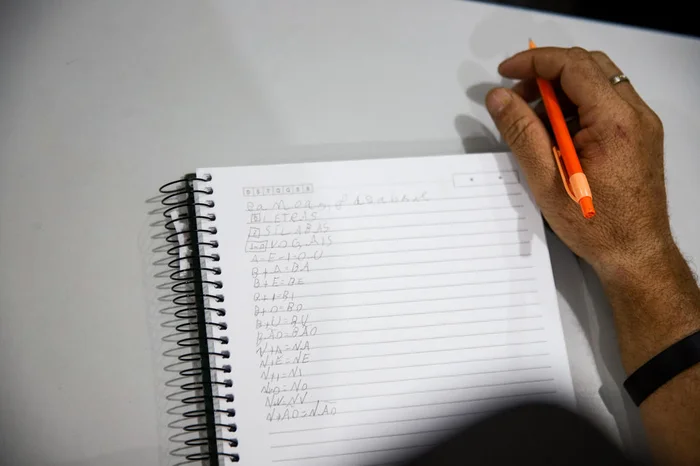 LETRAS
SÍLABAS
VOGAIS
A-E-I-O-U
B+A=BA
B+E=BE
B+I=BI
B+O=BO
B+U=BU
BÃO=BÃO
N+A=NA
N+E=NE
N+I=NI
N+O=NO
N+U=NU
N+ÃO=NÃO